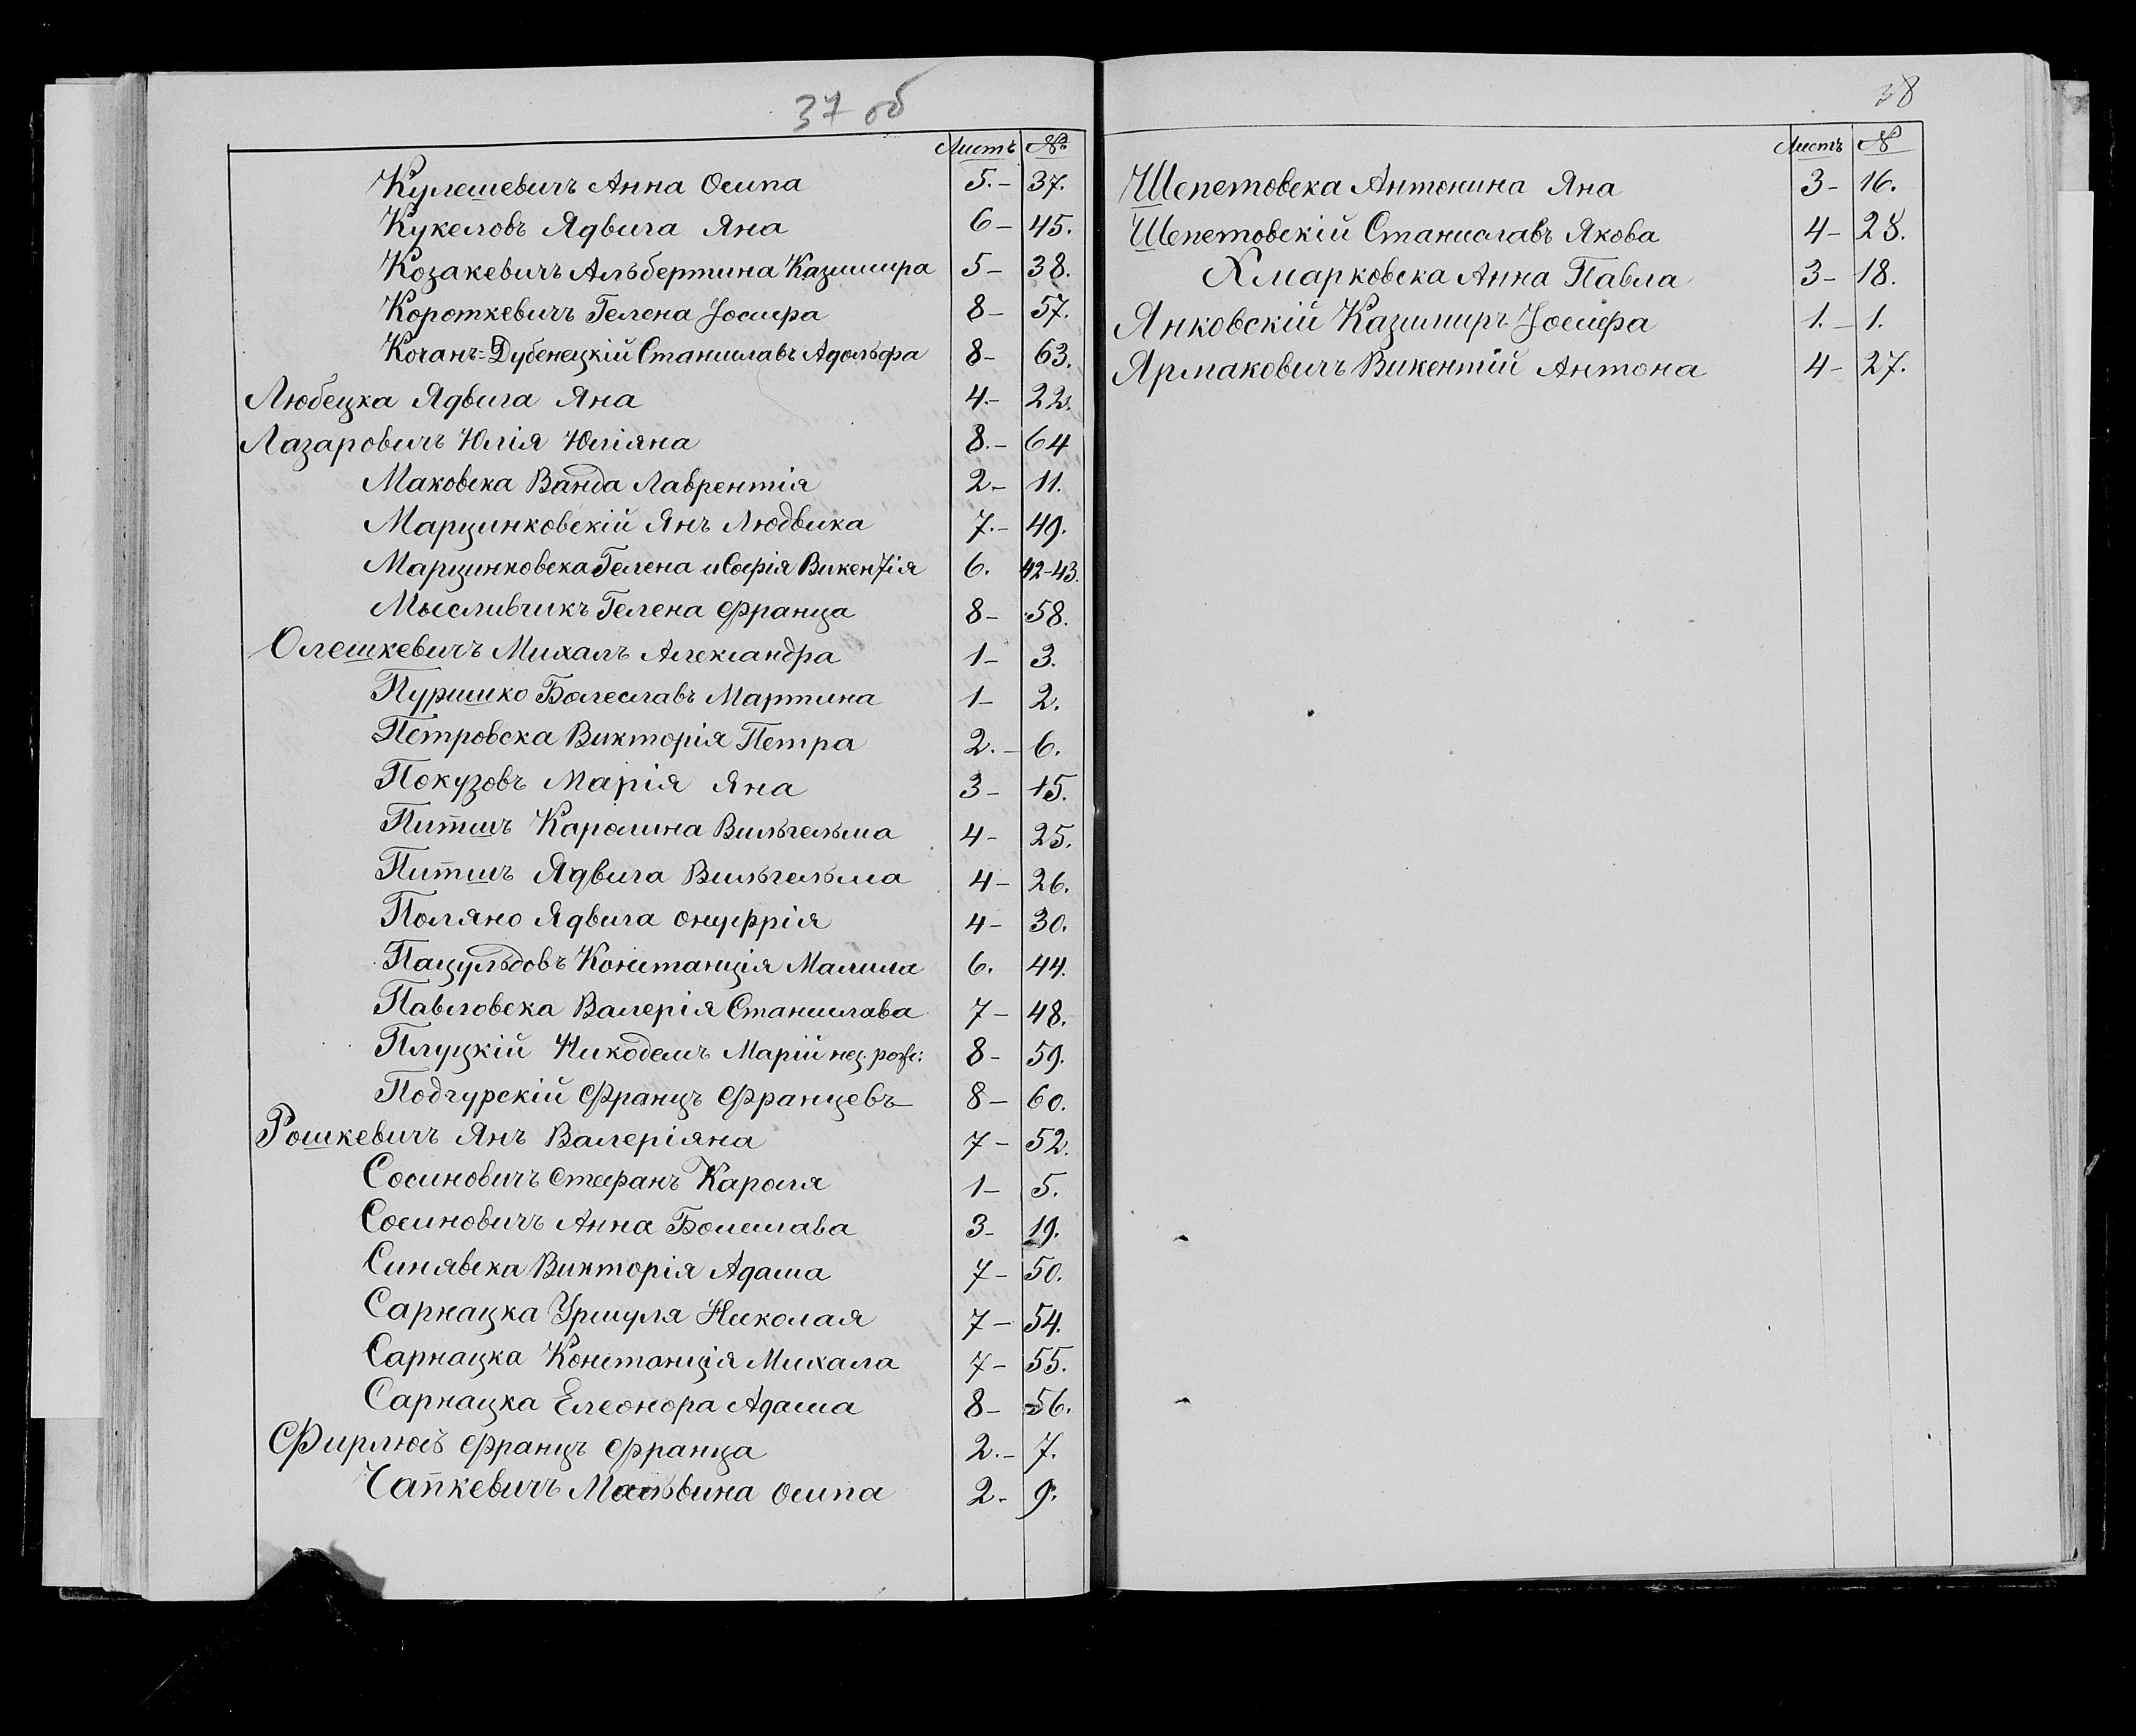 37 об
Листъ №
Кулешевичъ Анна Осипа 5.- 37.
Кукеловъ Ядвига Яна 6- 45.
Козакевичъ Альбертина Казимира 5- 38.
Короткевичъ Гелена Іосифа 8- 57.
Кочанъ=Дубенецкій Станиславъ Адольфа 8- 63.
Любецка Ядвига Яна 4.- 22.
Лазаровичъ Юлія Юліяна 8.- 64
Маковска Ванда Лаврентія 2- 11.
Марцинковскій Янъ Людвика 7.- 49.
Марцинковска Гелена и Софія Викентія 6. 42-43.
Мысливчикъ Гелена Франца 8- 58.
Олешкевичъ Михалъ Александра 1- 3.
Пуришко Болеславъ Мартина 1- 2.
Петровска Викторія Петра 2.- 6.
Покузовъ Марія Яна 3- 15.
Питшъ Каролина Вильгельма 4- 25.
Питшъ Ядвига Вильгельма 4- 26.
Поляно Ядвига Онуфрія 4- 30.
Пацульдовъ Констанція 6. 44.
Павловска Валерія Станислава 7- 48.
Плуцкій Никодемъ Маріи 8- 59.
Подгурскій Францъ Францевъ 8- 60.
Рошкевичъ Янъ Валеріяна 7- 52.
Сосиновичъ Стефанъ Кароля 1- 5.
Сосиновичъ Анна Болеслава 3- 19.
Синявска Викторія Адама 7- 50.
Сарнацка Уршуля Николая 7- 54.
Сарнацка Констанція Михала 7- 55.
Сарнацка Елеонора Адама 8- 56.
Фирлюсъ Францъ Франца 2.- 7.
Чапкевичъ Мальвина Осипа 2- 9.
38
Листъ №
Шепетовска Антонина Яна 3- 16.
Шепетовскій Станиславъ Якова 4- 28.
Хмарковска Анна Павла 3- 18.
Янковскій Казимиръ Іосифа 1.- 1.
Ярмаковичъ Викентій Антона 4- 27.